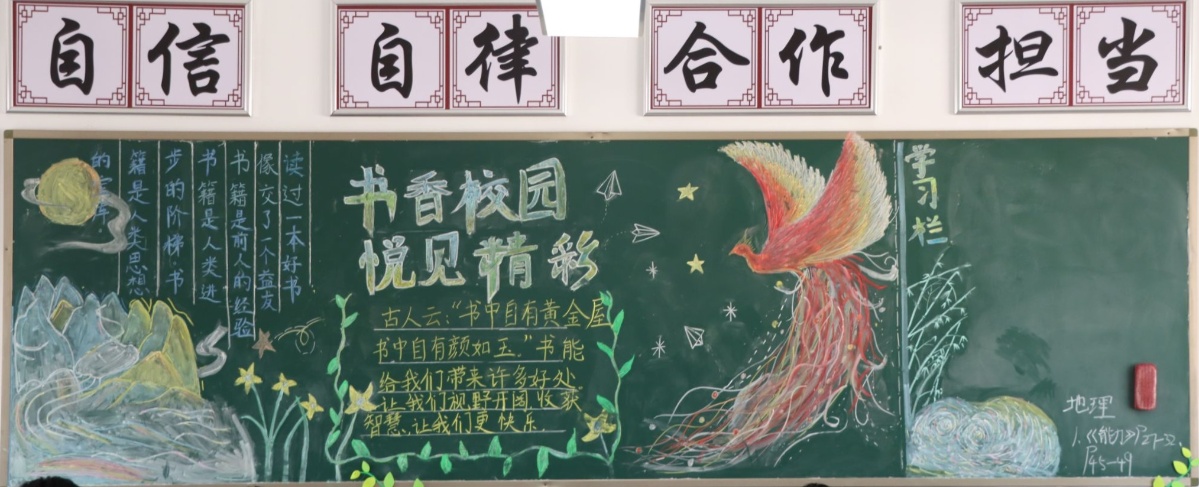 自信
自律
合作
担当
读过一本好书
像交了一个益友
书籍是前人的经验
书籍是人类进
步的阶梯·书
籍是人类思想
的
书香校园
悦见精彩
古人云:“书中自有黄金屋
书中自有颜如玉。”书能
给我们带来许多好处
让我们视野开阔收获
智慧,让我们更快乐
学习栏
地理
1.《能力》
P45-49